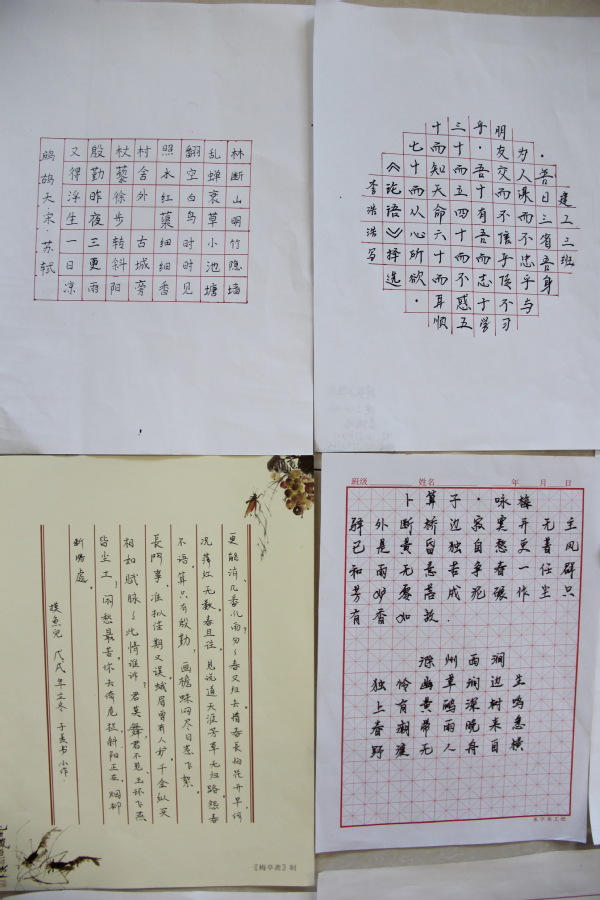 林断山明竹隐墙
乱蝉衰草小池塘
翻空白鸟时时见
照水红蕖细细香
村舍外 古城旁
杖藜徐步转斜阳
殷勤昨夜三更雨
又得浮生一日凉
鹧鸪天·宋·苏轼
建工三班
·吾日三省吾身
为人谋而不忠乎与
明友交而不信乎传不习
乎·吾十有吾而志于学
三十而五四十而不惑五
十而知天命六十而耳顺
七十而从心所欲·
《论语》择选
李浩浩写
更能消、几番风雨匆々春又归去惜春長怕花开早,何
况落红无数春且住。见说道天涯芳草无归路怨春
不语。算只有殷勤,画檐蛛网尽日惹飞絮。
長門事,准拟佳期又误蛾眉曾有人妒千金纵买
相如赋脉々此情谁诉?君莫舞君不见玉环飞燕
皆尘土!闲愁最苦休去倚危栏斜阳正在,烟柳
断肠處。
摸鱼兒 戊戌年立冬 子美书小作.
《梅亭斋》制
班级 姓名 年 月 日
卜算子·咏梅
驿外断桥边寂寞开无主
已是黄昏独自愁更著风
和雨无意苦争春一任群
芳妒零落成泥碾作尘只
有香如故.
滁州西涧
独怜幽草涧边生
上有黄鹂深树鸣
春潮带雨晚来急
野渡无人舟自横